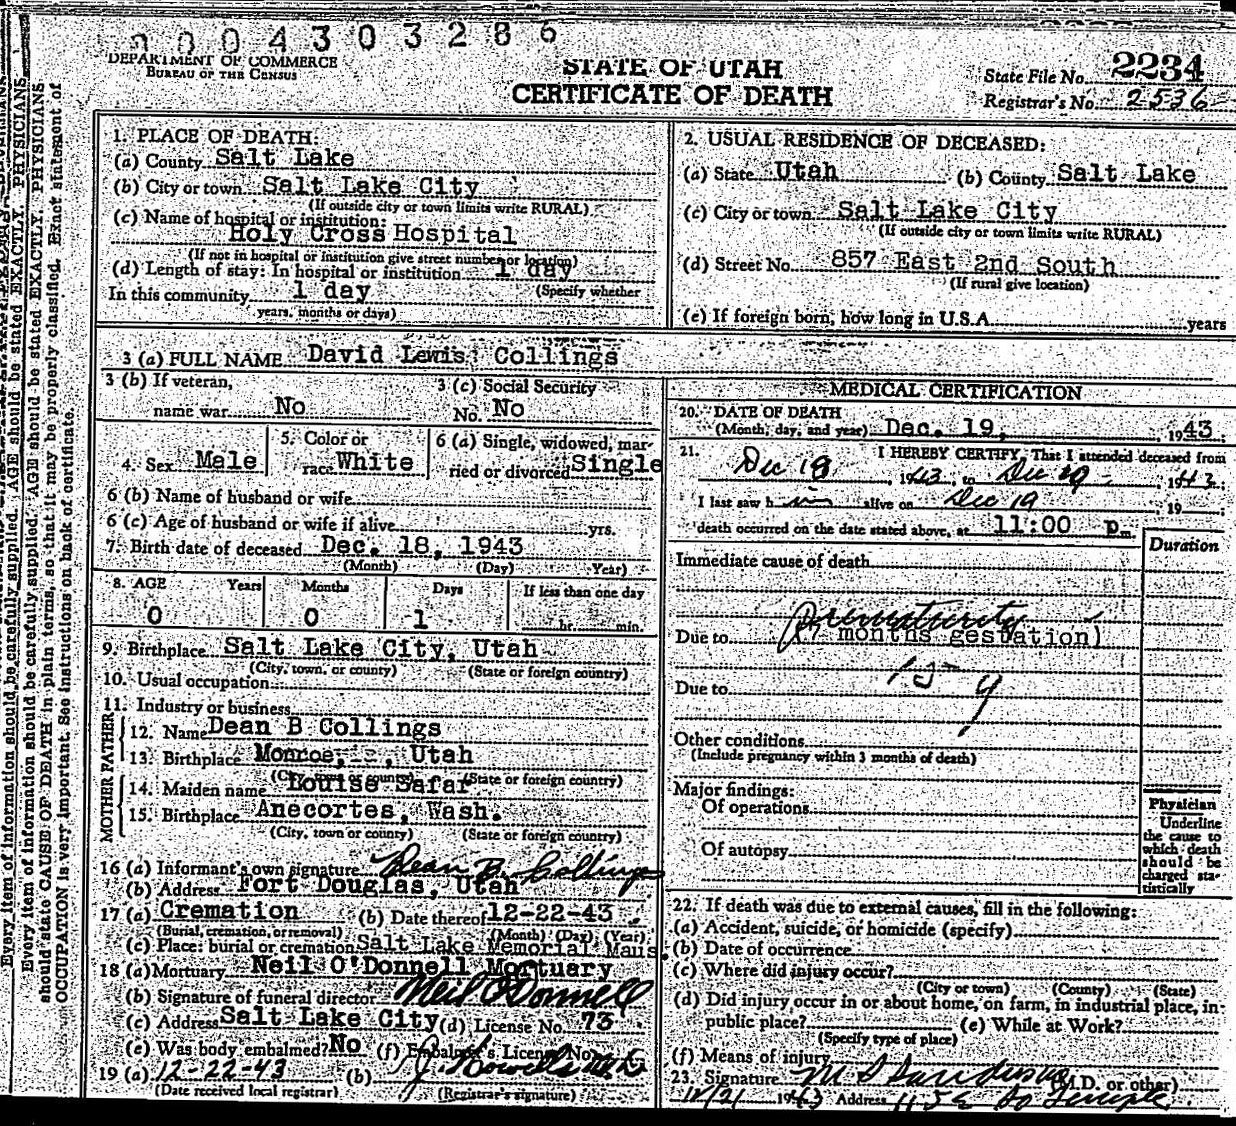 0004303286
DEPARTMENT OF COMMERCE
BUREAU OF THE CENSUS
STATE OF UTAH
CERTIFICATE OF DEATH
State File No. 2234
Registrar's No. 2536
Every item of information should be carefully supplied. AGE should be stated EXACTLY. PHYSICIANS
should state CAUSE OF DEATH in plain terms, so that it may be properly classified. Exact statement of
OCCUPATION is very important. See instructions on back of certificate.
1. PLACE OF DEATH:
(a) County Salt Lake
(b) City or town Salt Lake City
(If outside city or town limits write RURAL)
(c) Name of hospital or institution:
Holy Cross Hospital
(If not in hospital or institution give street number or location)
(d) Length of stay: In hospital or institution 1 day
(Specify whether
In this community 1 day
years, months or days)
2. USUAL RESIDENCE OF DECEASED:
(a) State Utah (b) County Salt Lake
(c) City or town Salt Lake City
(If outside city or town limits write RURAL)
(d) Street No. 857 East 2nd South
(If rural give location)
(e) If foreign born, how long in U.S.A. years
3 (a) FULL NAME David Lewis Collings
3 (b) If veteran,
name war No
3 (c) Social Security
No. No
4. Sex Male
5. Color or
race White
6 (a) Single, widowed, mar-
ried or divorced Single
6 (b) Name of husband or wife
6 (c) Age of husband or wife if alive yrs.
7. Birth date of deceased Dec. 18, 1943
(Month) (Day) Year)
8. AGE Years Months Days If less than one day
0 0 1 hr. min.
9. Birthplace Salt Lake City, Utah
(City, town, or county) (State or foreign country)
10. Usual occupation
11. Industry or business
FATHER
12. Name Dean B Collings
13. Birthplace Monroe, Utah
(City, town or county) (State or foreign country)
MOTHER
14. Maiden name Louise Safar
15. Birthplace Anecortes, Wash.
(City, town or county) (State or foreign country)
16 (a) Informant's own signature Dean B. Collings
(b) Address Fort Douglas, Utah
17 (a) Cremation (b) Date thereof 12-22-43
(Burial, cremation, or removal) (Month) (Day) (Year)
(c) Place: burial or cremation Salt Lake Memorial Maus.
18 (a) Mortuary Neil O'Donnell Mortuary
(b) Signature of funeral director Neil O'Donnell
(c) Address Salt Lake City (d) License No. 73
(e) Was body embalmed? No (f) Embalmer's License No.
19 (a) 12-22-43 (b)
(Date received local registrar) (Registrar's signature)
MEDICAL CERTIFICATION
20. DATE OF DEATH
(Month, day, and year) Dec. 19, 1943
21. I HEREBY CERTIFY, That I attended deceased from
Dec 18, 1943, to Dec 19, 1943.
I last saw him alive on Dec 19 19
death occurred on the date stated above, at 11:00 p.m.
Duration
Immediate cause of death
Prematurity
Due to (7 months gestation)
Due to
Other conditions
(Include pregnancy within 3 months of death)
Major findings:
Of operations
Of autopsy
Physician
Underline
the cause to
which death
should be
charged sta-
tistically
22. If death was due to external causes, fill in the following:
(a) Accident, suicide, or homicide (specify)
(b) Date of occurrence
(c) Where did injury occur?
(City or town) (County) (State)
(d) Did injury occur in or about home, on farm, in industrial place, in
public place? (e) While at Work?
(Specify type of place)
(f) Means of injury
23. Signature (M.D. or other)
12/21 1943 Address So Temple